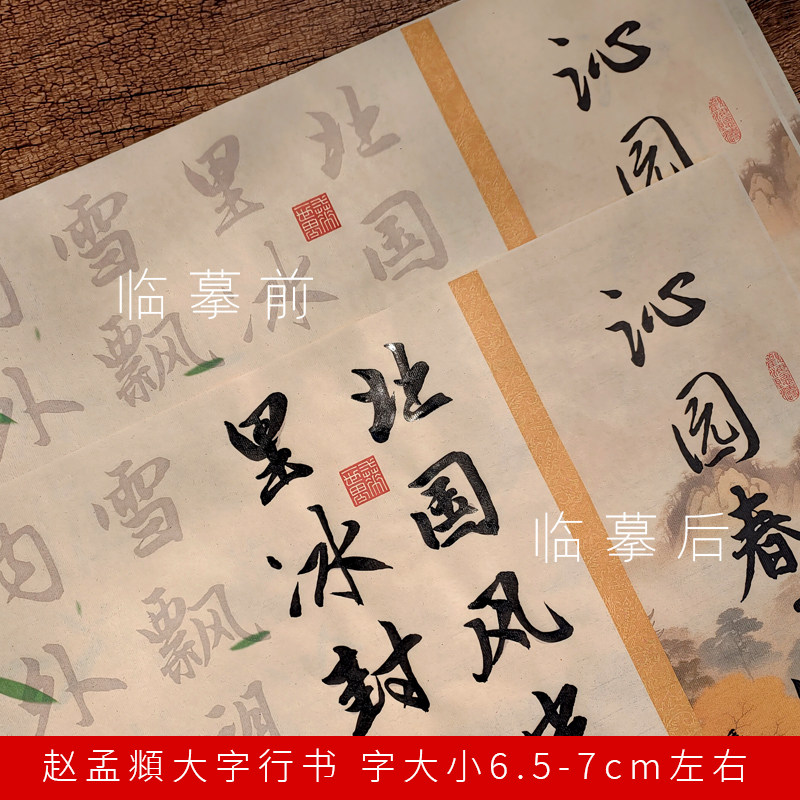 沁园
北国
里冰
雪飘
外
临摹前
沁园春
北国风
里冰封
雪飘
内外
临摹后
赵孟頫大字行书 字大小6.5-7cm左右